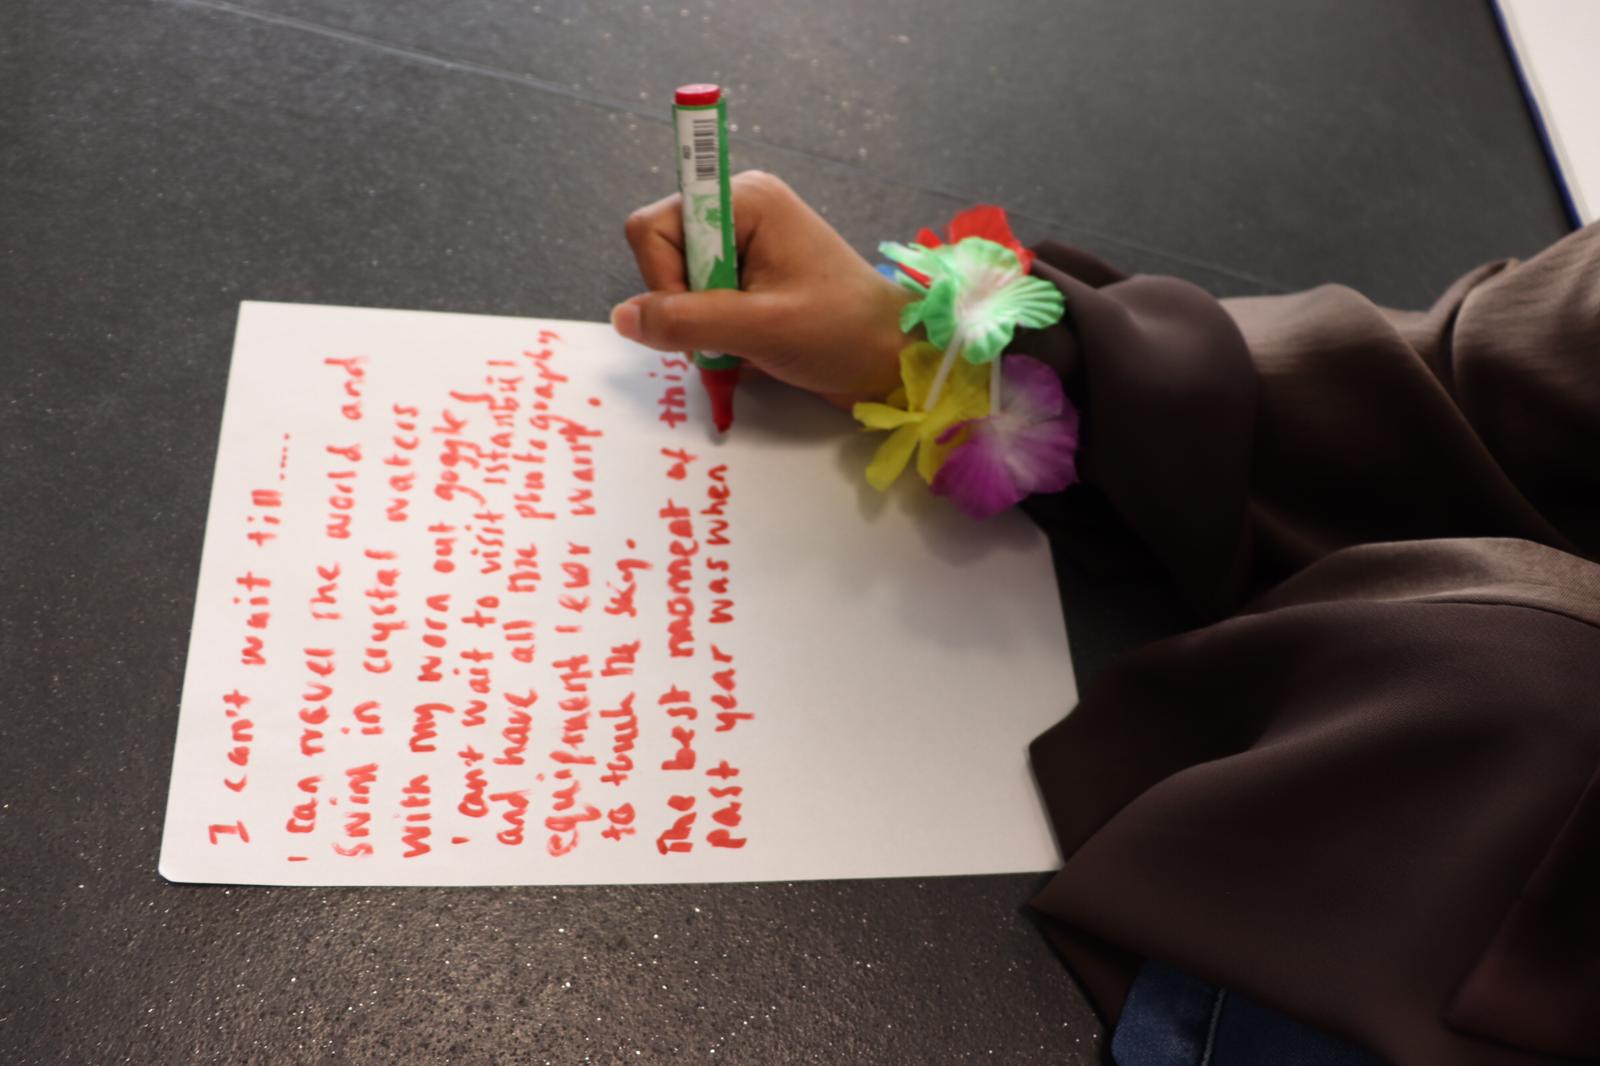 I can't wait till.....
I can travel the world and
swim in crystal waters
with my worn out goggles
I cant wait to visit istanbul
and have all the photography
equipment I ever want.
to touch the sky.
The best moment of this
past year was when
RED